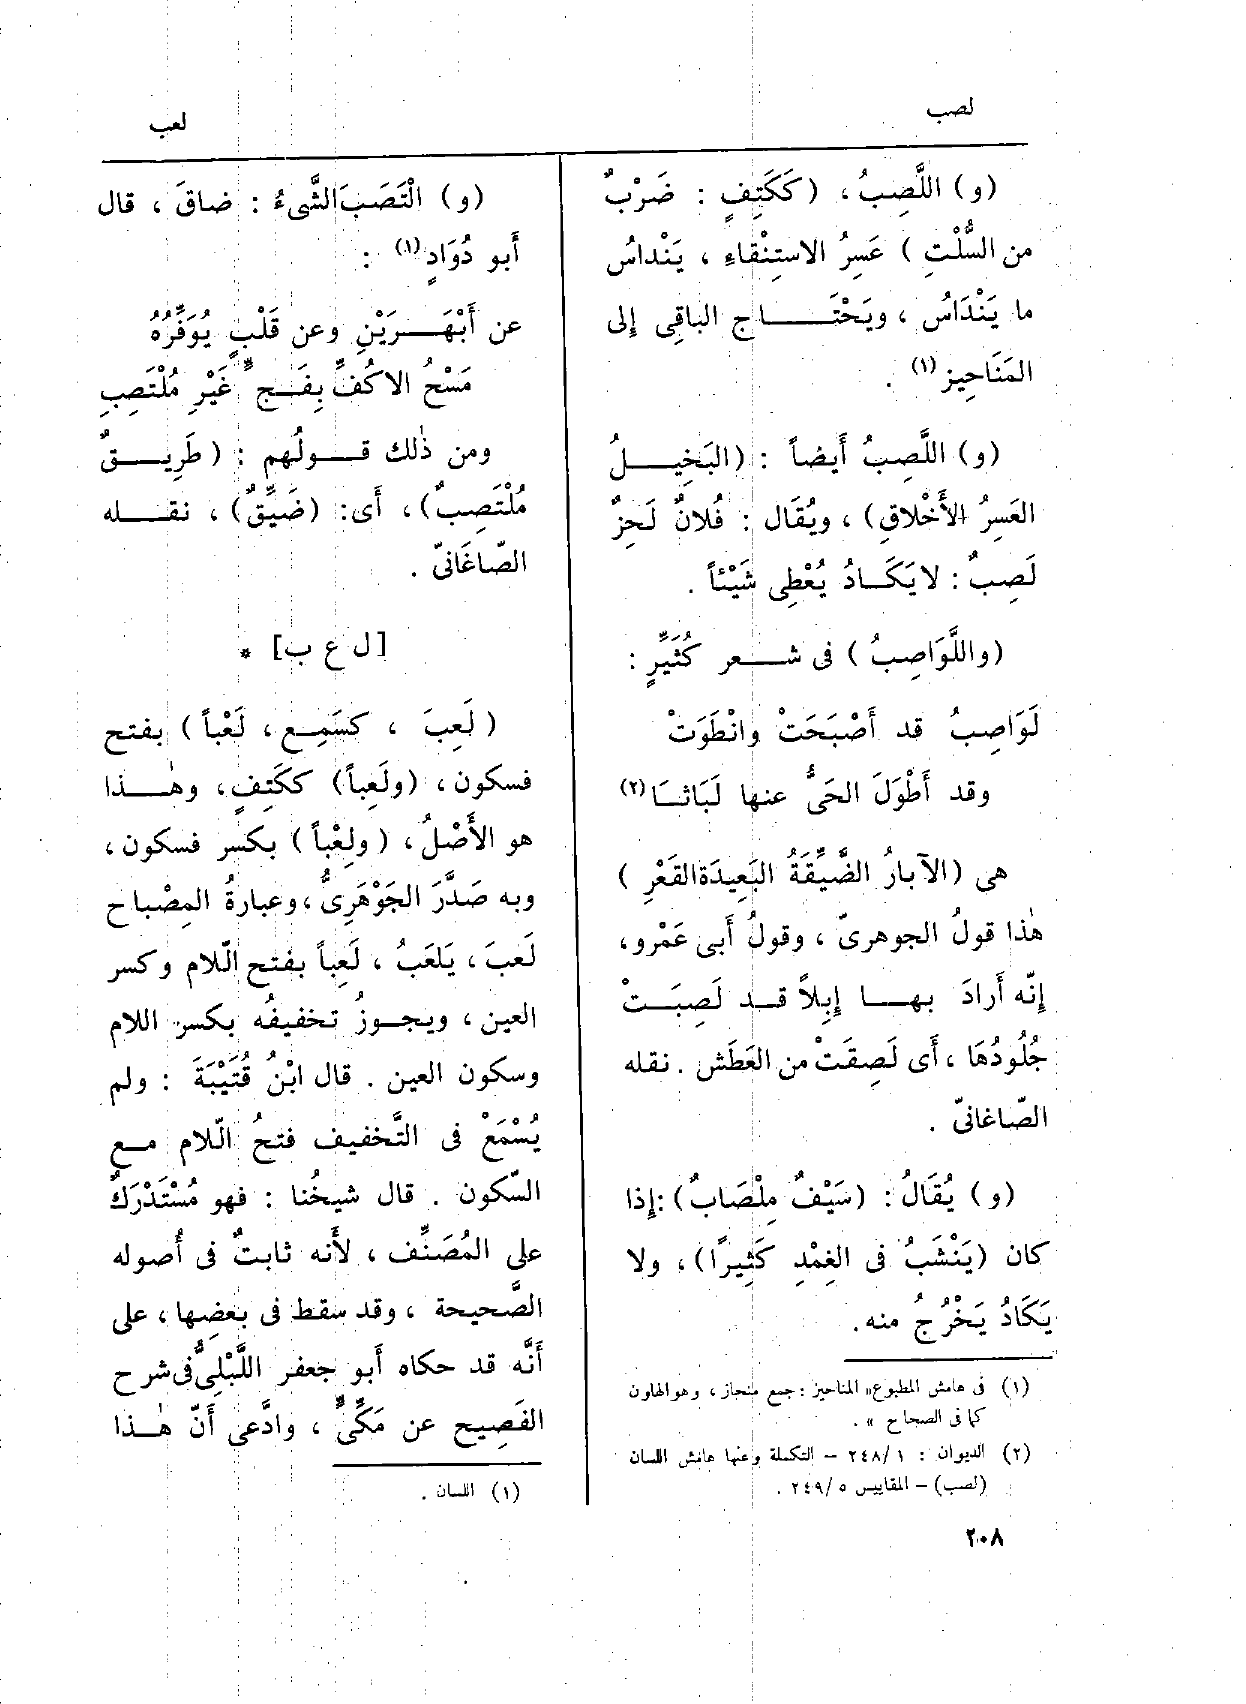 لصب
لعب
(و) اللَّصِبُ ، (كَكَتِفٍ : ضَرْبٌ
من السُّلْتِ ) عَسِرُ الاستِنْقاءِ ، يَنْداسُ
ما يَنْدَاسُ ، ويَحْتَاج الباقِى إلى
المَنَاحِيز (١) .
(و) اللَّصِبُ أَيضاً : (البَخِيلُ
العَسِرُ الأَخْلاقِ) ، ويُقَال : فُلانٌ لَحِزٌ
لَصِبٌ : لا يَكَادُ يُعْطِى شَيْئاً .
(واللَّوَاصِبُ ) فى شعر كُثَيِّرٍ :
لَوَاصِبُ قد أَصْبَحَتْ وانْطَوَتْ
وقد أَطْوَلَ الحَىُّ عنها لَبَاثَا (٢)
هى (الآبارُ الضَّيِّقَةُ البَعِيدَةالقَعْرِ )
هٰذا قولُ الجوهرىّ ، وقولُ أَبى عَمْرو،
إنّه أَرادَ بها إبِلاً قد لَصِبَتْ
جُلُودُهَا ، أَى لَصِقَتْ من العَطَش . نقله
الصّاغانىّ .
(و) يُقَالُ : (سَيْفٌ مِلْصَابٌ) : إذا
كان (يَنْشَبُ فى الغِمْدِ كَثِيرًا) ، ولا
يَكَادُ يَخْرُجُ منه .
(١) فى هامش المطبوع « المناحيز : جمع منحاز ، وهو الهاون
كما فى الصحاح » .
(٢) الديوان : ٢٤٨/١ – التكملة وعنها هامش اللسان
(لصب) – المقاييس ٢٤٩/٥ .
(و) الْتَصَبَ الشَّىءُ : ضاقَ ، قال
أَبو دُوَادٍ (١) :
عن أَبْهَرَيْنِ وعن قَلْبٍ يُوَفِّرُهُ
مَسْحُ الاكُفِّ بِفَجٍّ غَيْرِ مُلْتَصِبِ
ومن ذٰلك قولُهم : (طَرِيقٌ
مُلْتَصِبٌ) ، أَى : (ضَيِّقٌ) ، نقله
الصّاغَانىّ .
[ ل ع ب ] *
( لَعِبَ ، كسَمِع ، لَعْباً ) بفتح
فسكون ، (ولَعِباً) ككَتِفٍ ، وهٰذا
هو الأَصْلُ ، ( ولِعْباً ) بكسر فسكون ،
وبه صَدَّرَ الجَوْهَرِىُّ ، وعبارةُ المِصْباح
لَعبَ ، يَلعَبُ ، لَعِباً بفتح الّلام وكسر
العين ، ويجوزُ تخفيفُه بكسر اللام
وسكون العين . قال ابْنُ قُتَيْبَةَ : ولم
يُسْمَعْ فى التَّخفيف فتحُ الّلام مع
السّكون . قال شيخُنا : فهو مُسْتَدْرَكٌ
على المُصَنِّف ، لأَنه ثابتٌ فى أُصوله
الصَّحيحة ، وقد سقط فى بعضِها ، على
أَنَّه قد حكاه أَبو جعفر اللَّبْلِىُّ فى شرح
الفَصِيح عن مَكِّىٍّ ، وادَّعى أَنّ هٰذا
(١) اللسان .
٢٠٨